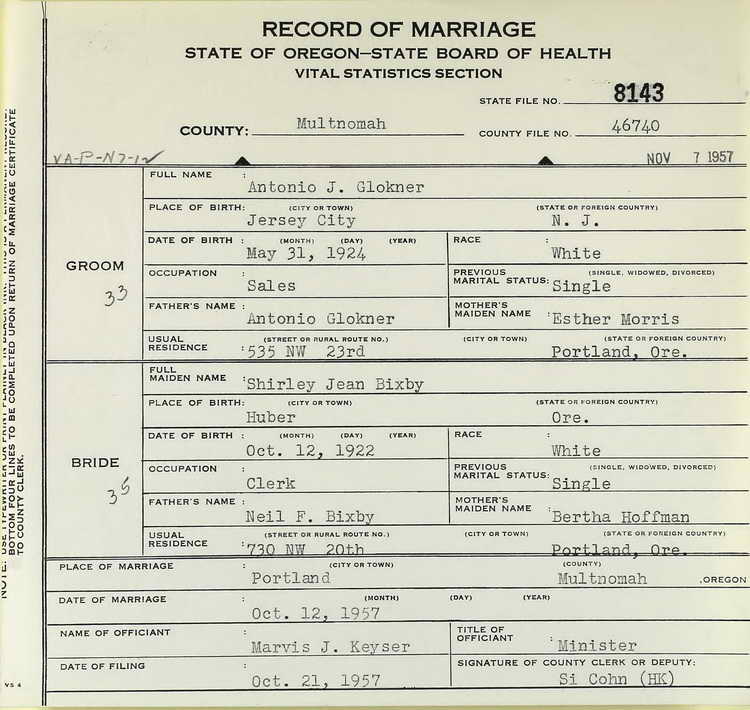 RECORD OF MARRIAGE
STATE OF OREGON—STATE BOARD OF HEALTH
VITAL STATISTICS SECTION
STATE FILE NO. 8143
COUNTY: Multnomah COUNTY FILE NO. 46740
VA-P-N7-1 NOV 7 1957
GROOM
33
FULL NAME : Antonio J. Glokner
PLACE OF BIRTH: (CITY OR TOWN) (STATE OR FOREIGN COUNTRY)
Jersey City N. J.
DATE OF BIRTH : (MONTH) (DAY) (YEAR) RACE :
May 31, 1924 White
OCCUPATION : PREVIOUS MARITAL STATUS: (SINGLE, WIDOWED, DIVORCED)
Sales Single
FATHER'S NAME : MOTHER'S MAIDEN NAME :
Antonio Glokner Esther Morris
USUAL RESIDENCE : (STREET OR RURAL ROUTE NO.) (CITY OR TOWN) (STATE OR FOREIGN COUNTRY)
535 NW 23rd Portland, Ore.
BRIDE
35
FULL MAIDEN NAME : Shirley Jean Bixby
PLACE OF BIRTH: (CITY OR TOWN) (STATE OR FOREIGN COUNTRY)
Huber Ore.
DATE OF BIRTH : (MONTH) (DAY) (YEAR) RACE :
Oct. 12, 1922 White
OCCUPATION : PREVIOUS MARITAL STATUS: (SINGLE, WIDOWED, DIVORCED)
Clerk Single
FATHER'S NAME : MOTHER'S MAIDEN NAME :
Neil F. Bixby Bertha Hoffman
USUAL RESIDENCE : (STREET OR RURAL ROUTE NO.) (CITY OR TOWN) (STATE OR FOREIGN COUNTRY)
730 NW 20th Portland, Ore.
PLACE OF MARRIAGE : (CITY OR TOWN) (COUNTY)
Portland Multnomah , OREGON
DATE OF MARRIAGE : (MONTH) (DAY) (YEAR)
Oct. 12, 1957
NAME OF OFFICIANT : TITLE OF OFFICIANT :
Marvis J. Keyser Minister
DATE OF FILING : SIGNATURE OF COUNTY CLERK OR DEPUTY:
Oct. 21, 1957 Si Cohn (HK)
BOTTOM FOUR LINES TO BE COMPLETED UPON RETURN OF MARRIAGE CERTIFICATE
TO COUNTY CLERK.
VS 4